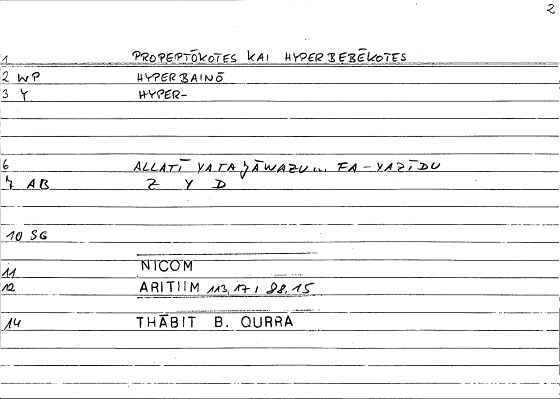 2
1 PROPEPTŌKOTES KAI HYPERBEBĒKOTES
2 WP HYPERBAINŌ
3 Y HYPER-
6 ALLATĪ YATAǦĀWAZU... FA-YAZĪDU
7 AB Z Y D
10 SG
11 NICOM
12 ARITIIM 113,17; 88,15
14 THĀBIT B. QURRA